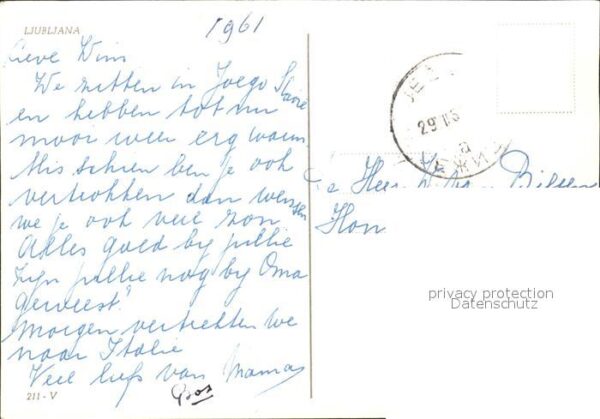 LJUBLJANA
1961
Lieve Wim
We zitten in Joego Slavie
en hebben tot nu
mooi weer erg warm
Misschien ben je ook
vertrokken dan wensen
we je ook veel zon
Alles goed by jullie
Zyn jullie nog by Oma
geweest?
morgen vertrekken we
naar Italie
Veel liefs van Mama
211 - V
29
De Heer
Hon
privacy protection
Datenschutz